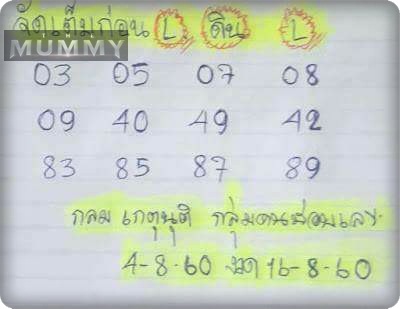 จัดเต็มก่อน L. ดิน L
MUMMY
03 05 07 08
09 40 49 42
83 85 87 89
กลม เกตุนุติ กลุ่มคนซ่อนเลข
4-8-60 งวด 16-8-60